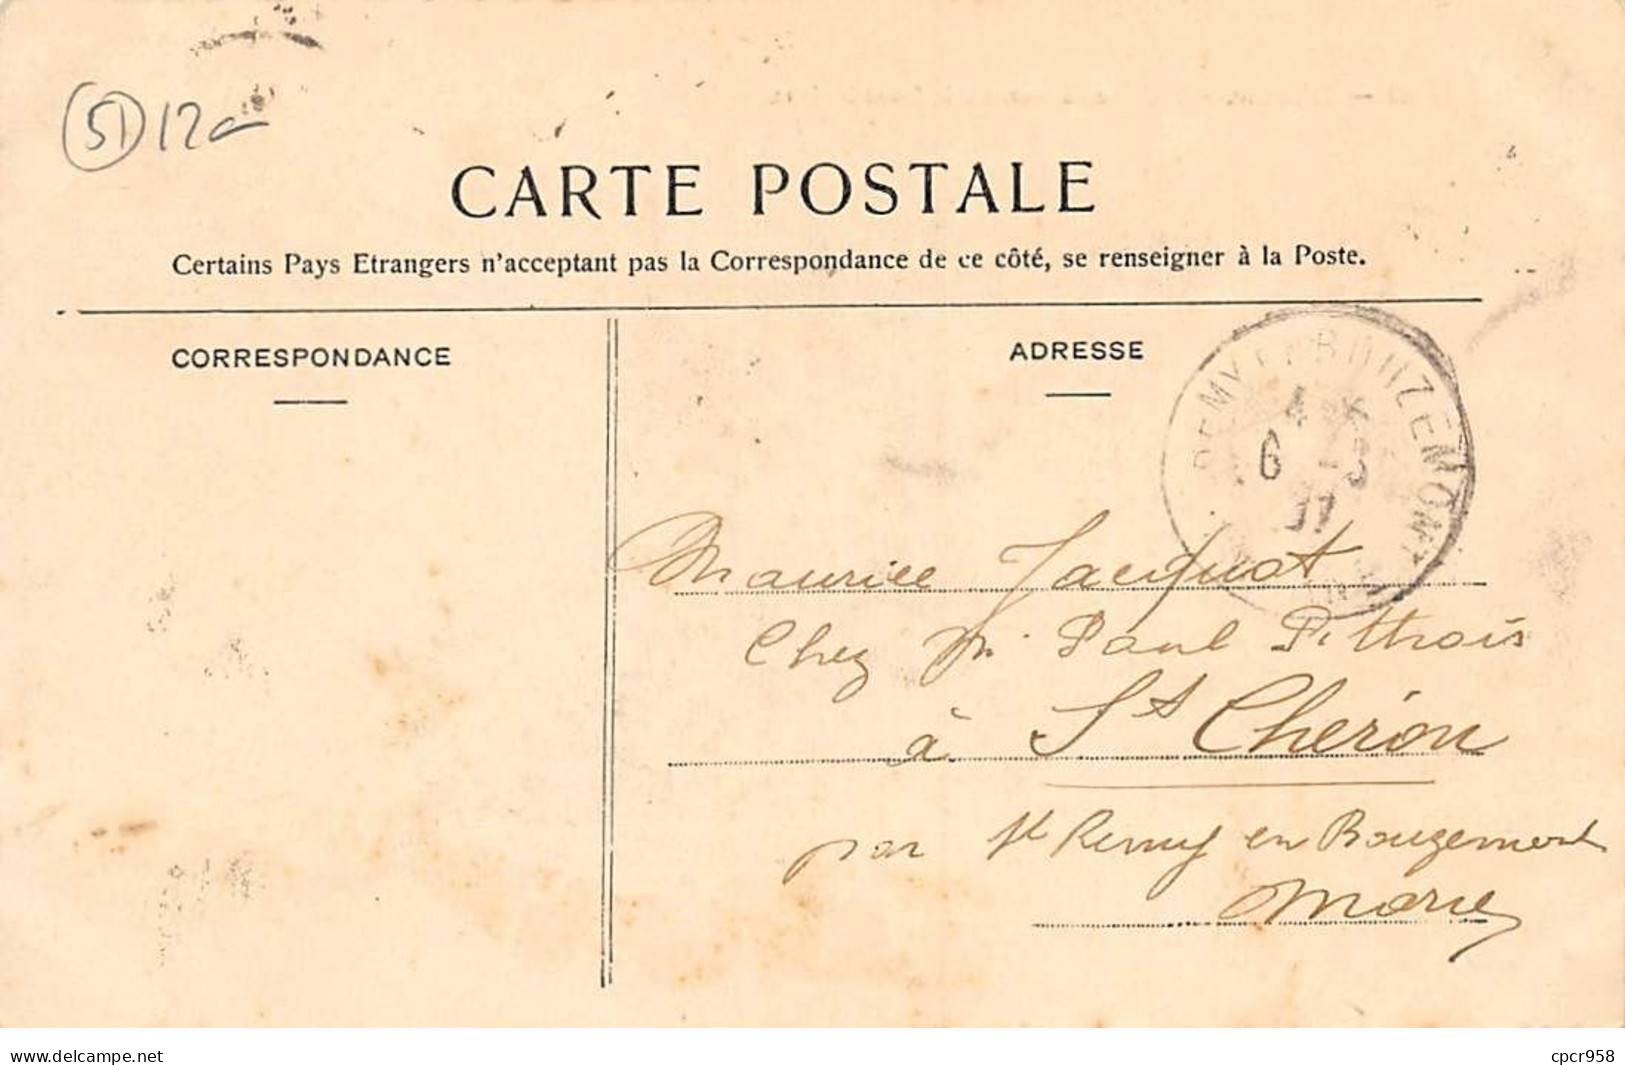 51 12
CARTE POSTALE
Certains Pays Etrangers n'acceptant pas la Correspondance de ce côté, se renseigner à la Poste.
CORRESPONDANCE
ADRESSE
6
Maurice Jacquot
Chez Mr Paul Pithois
à St Chéron
par St Remy en Bouzemont
Marne
www.delcampe.net
cpcr958